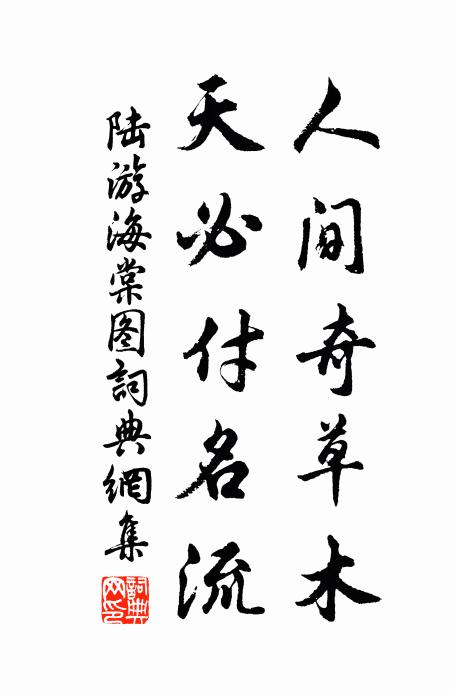 人间奇草木
天必付名流
陆游海棠图詞典網集
詞典
网印